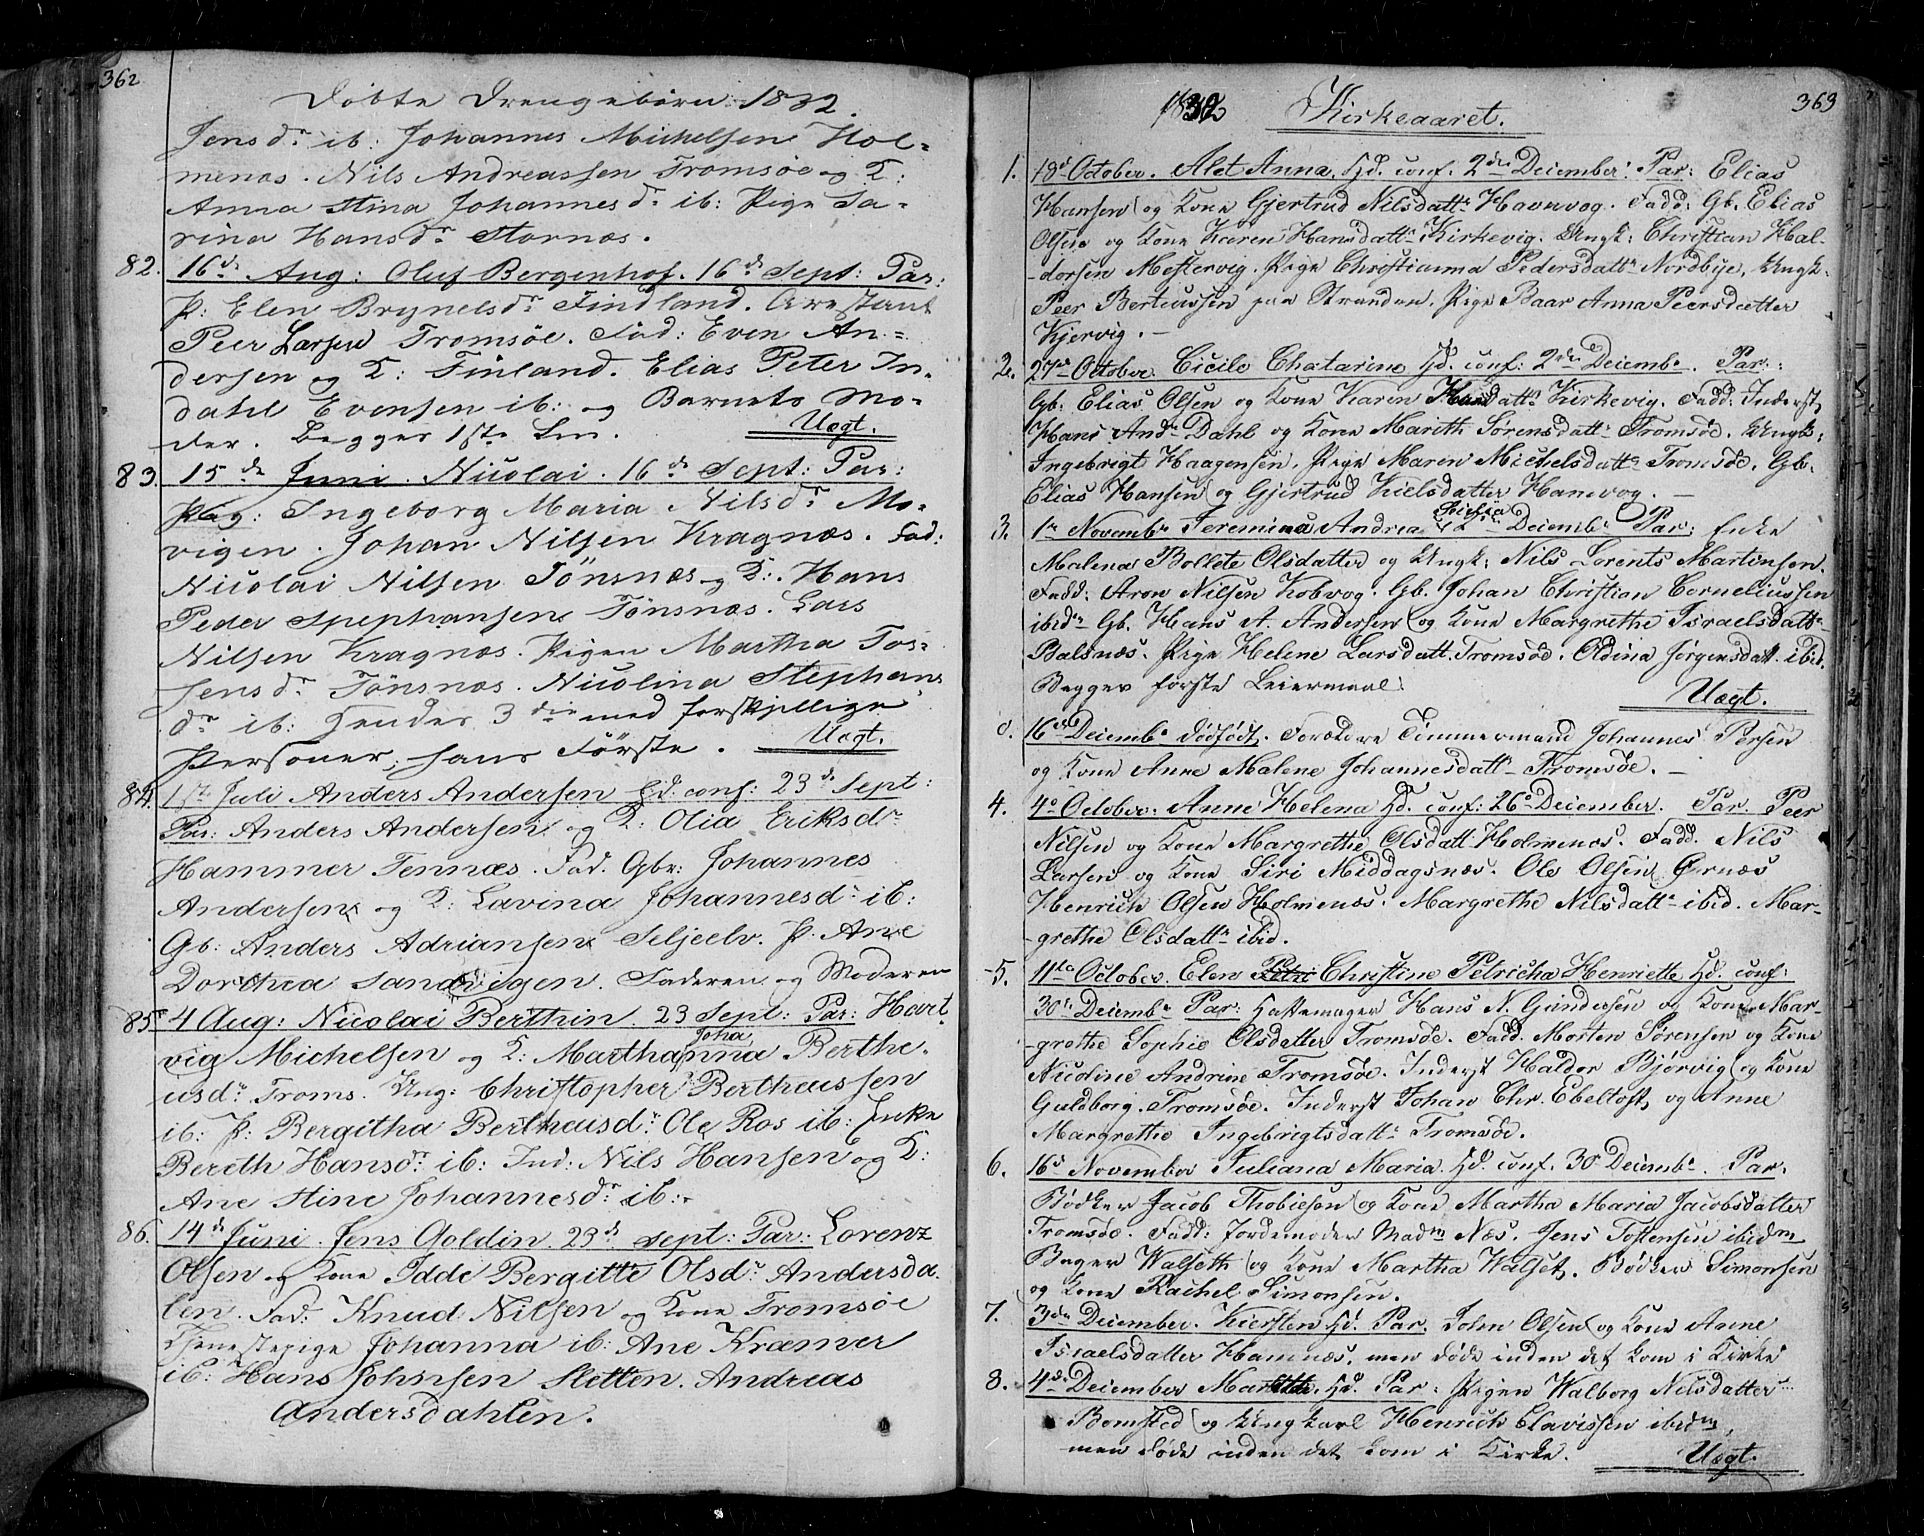 362
Döbte Drengebörn 1832.
Jensdr ib: Johannes Michelsen Hol=
menas. Nils Andreassen Tromsöe og K:
Anna Stina Johannesdr ib: Pige Sa=
rina Hansdr Stornæs.
82. 16de Aug: Oluf Bergenhof. 16de Sept: Par:
P: Elen Brynelsdr Findland. Arrestant
Peer Larsen Tromsöe. Fad: Even An=
dersen og K: Finland. Elias Peter In=
dahl Evensen ib: og Barnets Mo=
der. Begges 1ste Lm. Uægt.
83. 15de Juni. Nicolai. 16de Sept: Par:
Pig: Ingeborg Maria Nilsdr Mo=
vigen. Johan Nilsen Kragnæs. Fad:
Nicolai Nilsen Tönsnæs og K:. Hans
Peder Spephansen Tönsnæs. Lars
Nilsen Kragnæs. Pigen Martha Tos=
sensdr Tönsnæs. Nicolina Stephans
dr ib: Hendes 3die med forskjellige
Personer, hans Förste. Uægt.
84. 1ste Juli Anders Andersen Hd. conf: 23de Sept:
Par: Anders Andersen og K: Olia Eriksdr
Hammer Tennæs. Fad. Gbr: Johannes
Andersen og K: Lavina Johannesdr ib:
Gb: Anders Adriansen Seljeelv. P: Ane
Dorthea Sandvigen. Faderen og Moderen
85. 4 Aug: Nicolai Berthin. 23 Sept: Par: Hart=
vig Michelsen og K: Martha Johanna Berthe=
usdr Troms. Ung: Christopher Bertheussen
ib: P: Bergitha Bertheusdr Ole Ros ib: Enke
Bereth Hansdr ib: Ind: Nils Hansen og K:
Ane Stine Johannesdr ib:
86. 14de Juni. Jens Goldin. 23de Sept: Par: Lorenz
Olsen og Kone Idde Bergitte Olsdr Andersda=
len. Fad: Knud Nilsen og Kone Tromsöe
Tjenestepige Johanna ib: Ane Kræmer
ib: Hans Johnsen Sletten. Andreas
Andersdahlen.
1832 Kirkeaaret. 363
1. 18d October. Alet Anna, Hd. conf. 2den December. Par: Elias
Hansen og Kone Gjertrud Nilsdattr Havnvog. Fadd: Gb. Elias
Olsen og Kone Karen Hansdattr Kirkevig. Ungk: Christian Hal-
dorsen Mestervig. Pige Christianna Pedersdattr Nordbye, Ungk.
Peer Berteussen paa Stranden. Pige Baar Anna Peersdatter
Kjervig.
2. 27de October. Cicile Chatarine Hd. conf: 2den Decembr. Par:
Gb: Elias Olsen og Kone Karen Hansdattr Kirkevig. Fadd: Inderst
Hans Andr Dahl og Kone Mareth Sörensdattr Tromsöe. Ungk:
Ingebrigt Haagensen. Pige Maren Michelsdattr Tromsöe. Gb.
Elias Hansen og Gjertrud Nielsdatter Havnvog.
3. 1ste Novembr Jeremina Andrea 2den Decembr Par: Enke
Malenas Bollete Olsdatter og Ungk: Nils Lorents Martinsen.
Fadd: Aron Nilsen Kobvog. Gb. Johan Christian Corneliussen
ibidm Gb. Hans A. Andersen og Kone Margrethe Israelsdattr
Balsnæs. Pige Helene Larsdatt. Tromsöe. Odina Jörgensdatt. ibid.
Begges förste Leiermaal. Uægt.
d. 16de Decembr dödfödt. Forældre Tömmermand Johannes Persen
og Kone Anne Malene Johannesdattr Tromsöe.
4. 4de October. Anne Helena Hd. conf: 26de December. Par. Peer
Nilsen og Kone Margrethe Olsdatt. Holmenes. Fadd. Nils
Larsen og Kone Siri Middagsnæs. Ole Olsen Örnæs
Henrich Olsen Holmenæs. Margrethe Nilsdattr ibid. Mar-
grethe Olsdattr ibid.
5. 11te October. Elen Christine Petricha Henriette Hd. conf:
30te Decembr Par: Hattemager Hans N. Gundersen og Kone Mar-
grethe Sophie Olsdatter Tromsöe. Fadd. Morten Sörensen og Kone
Nicoline Andrine Tromsöe. Inderst Haldor Bjørvig og Kone
Guldborg. Tromsöe. Inderst Johan Chr. Ebeltoft, og Anne
Margrethe Ingebrigtsdattr Tromsöe.
6. 16de November Juliana Maria. Hd. conf. 30 Decembr. Par.
Bödker Jacob Thobiesen og Kone Martha Maria Jacobsdatter
Tromsöe. Fadd: Jordemoder Madm Næs. Jens Tostensen ibidm
Bager Walseth og Kone Martha Walset. Bödker Simonsen
og Kone Rachel Simonsen.
7. 3die December. Kiersten Hd. Par. John Olsen og Kone Anne
Israelsdatter Hamnæs, men döde inden det kom i Kirke
8. 4de December Marthe, Hd. Par: Pigen Walborg Nilsdatter
Bomsted og Ungkarl Henrich Clavissen ibidm,
men döde inden det kom i Kirke. Uægt.